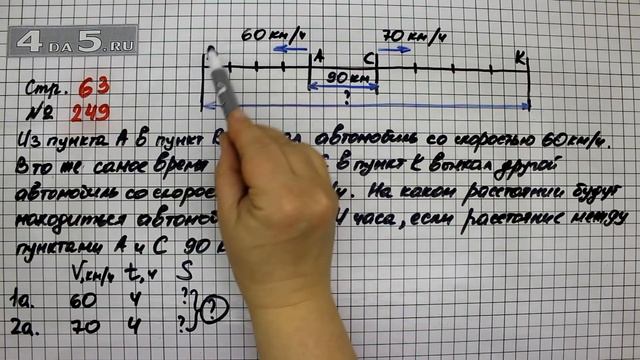 4 DA 5.RU
60 км/ч 70 км/ч
А С К
90 км
?
Стр. 63
№ 249
Из пункта А в пункт автомобиль со скоростью 60 км/ч.
В то же самое время в пункт К выехал другой
автомобиль со скорос /ч. На каком расстоянии будут
находиться автомоб 4 часа, если расстояние между
пунктами А и С 90 к
V, км/ч t, ч S
1а. 60 4 ?
?
2а. 70 4 ?